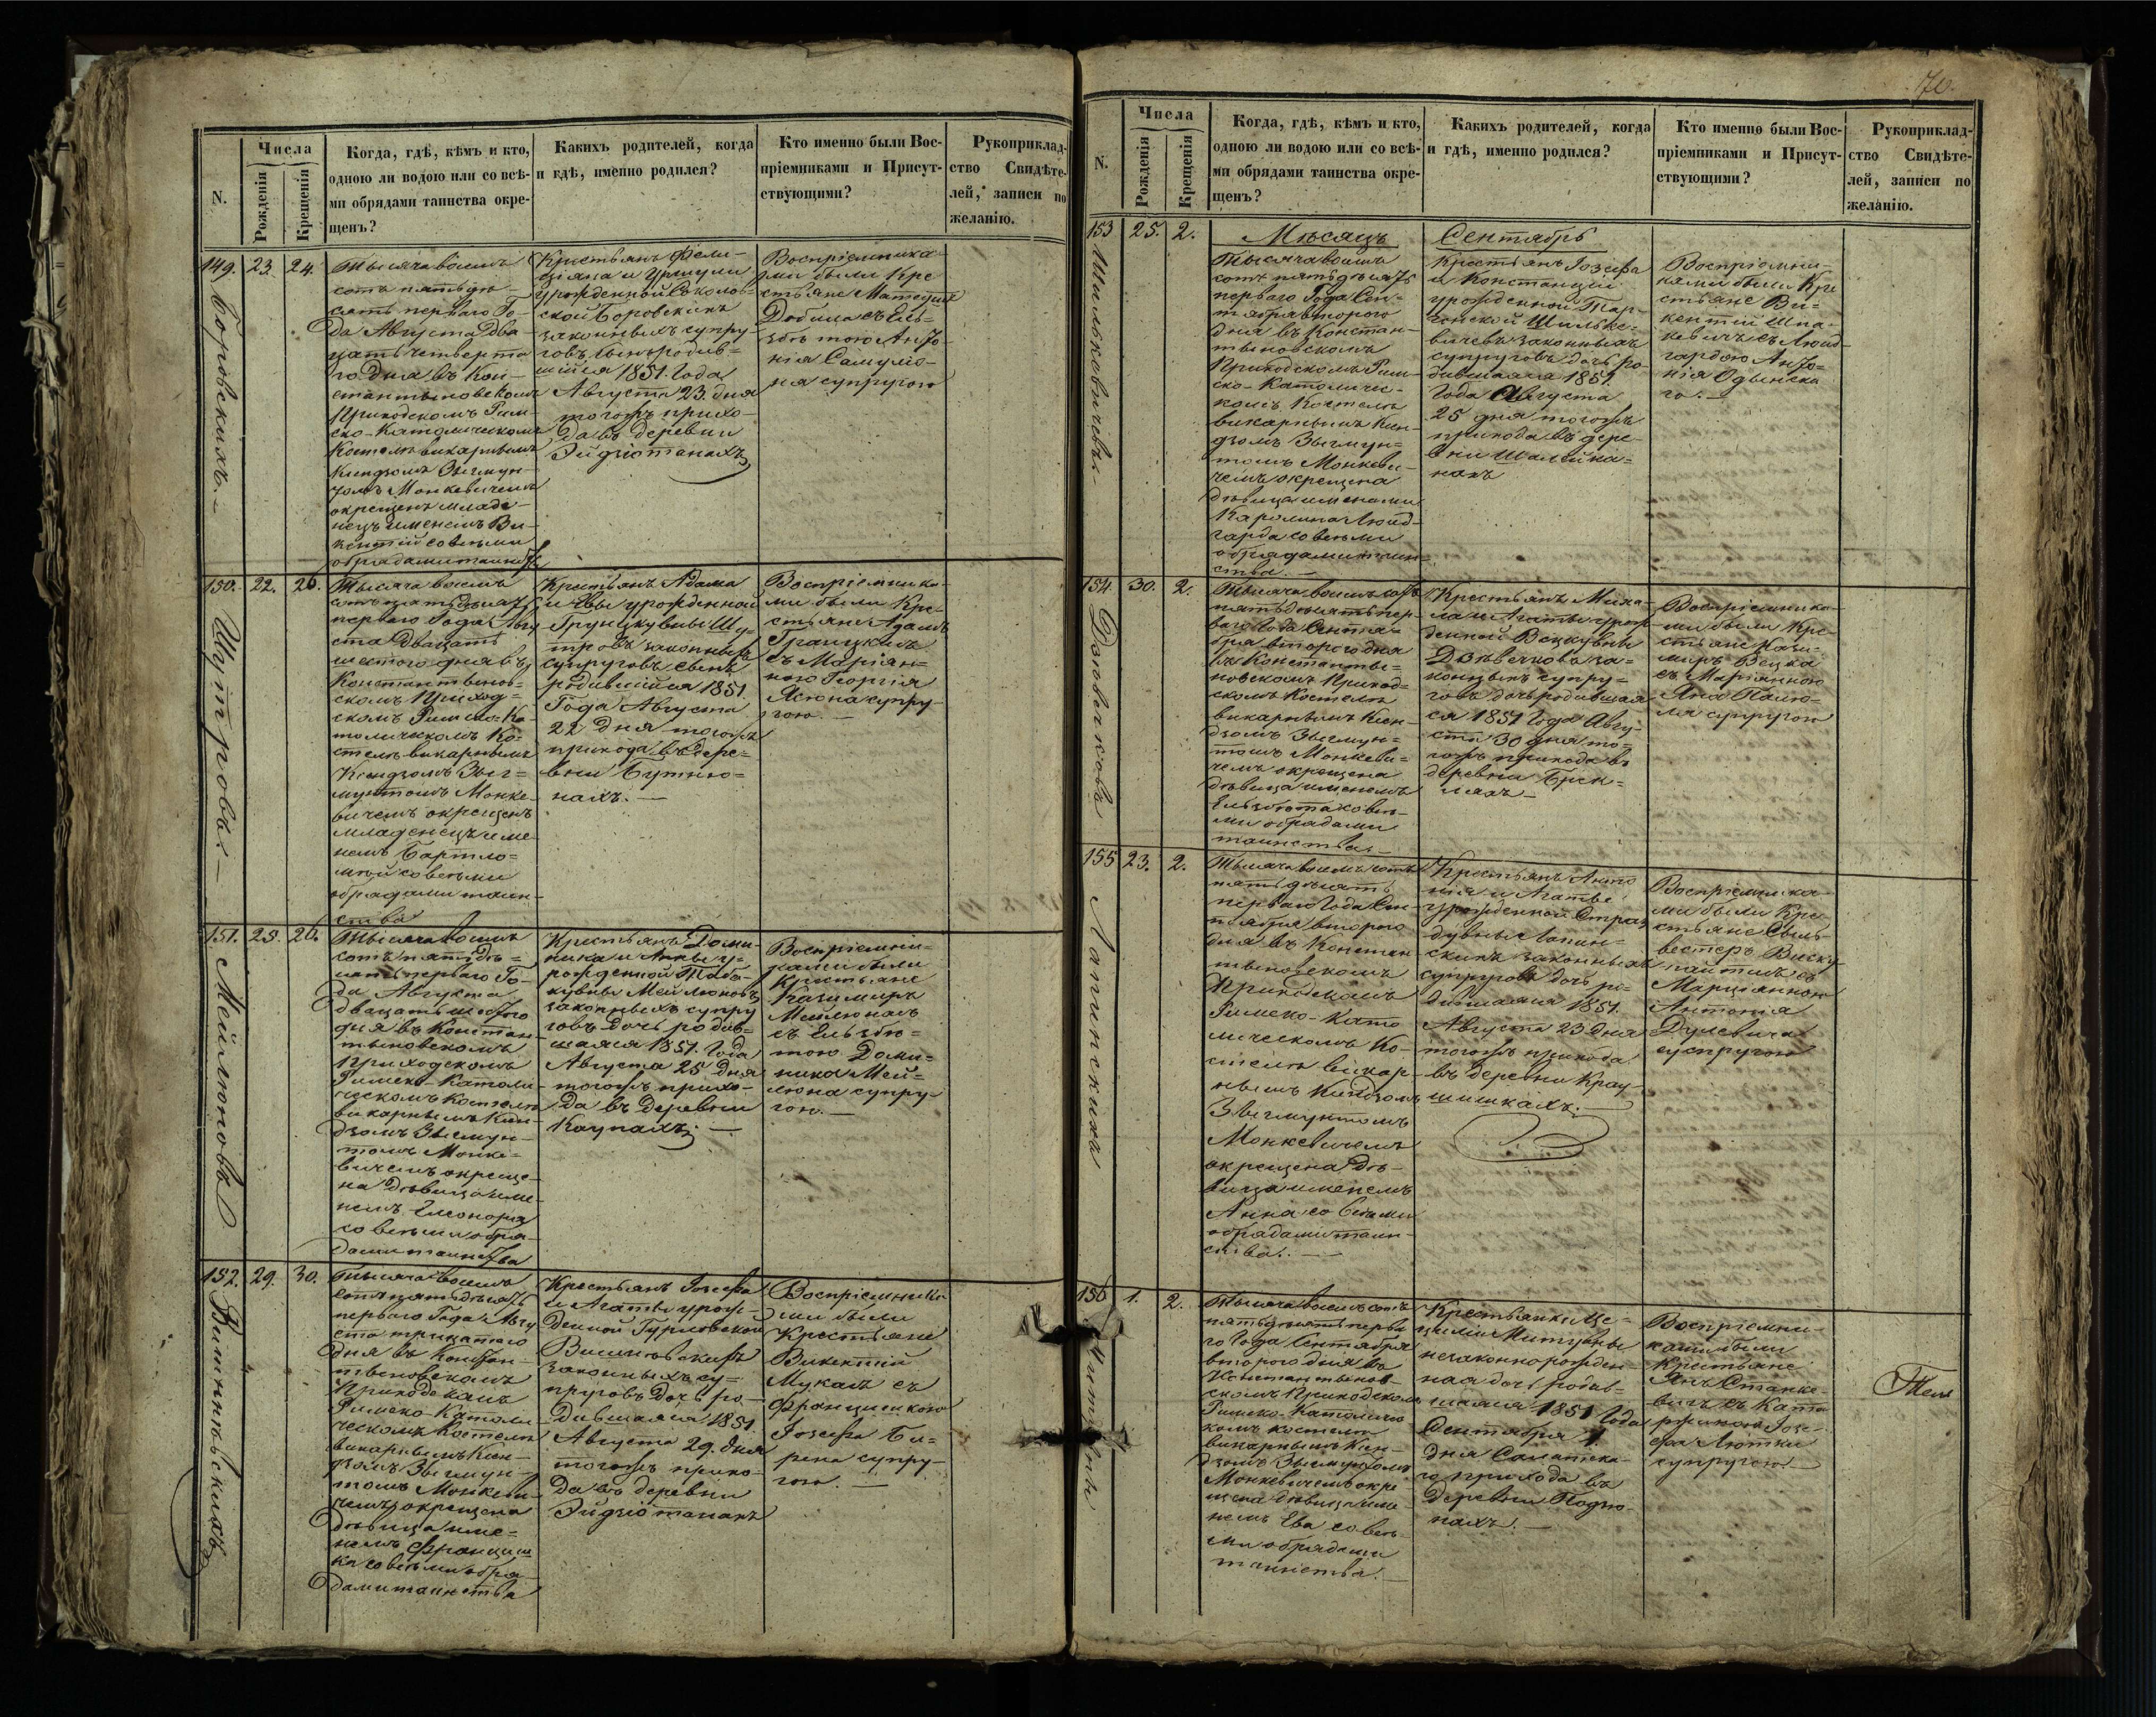 70.
N.
Числа
Рожденія
Крещенія
Когда, гдѣ, кѣмъ и кто,
одною ли водою или со всѣ-
ми обрядами таинства окре-
щенъ?
Какихъ родителей, когда
и гдѣ, именно родился?
Кто именно были Вос-
пріемниками и Присут-
ствующими?
Рукоприклад-
ство Свидѣте-
лей, записи по
желанію.
149. 23. 24.
Боровскихъ.—
Тысяча восемь
сотъ пятьде-
сятъ перваго Го-
да Августа Два-
цать четверта
го дня въ Кон-
стантыновскомъ
Приходскомъ Рим-
ско-Католическомъ
Костелѣ викарнымъ
Ксендзомъ Зыгмун-
томъ Монкевичемъ
окрещенъ младе-
нецъ именемъ Ви-
кентій совсѣми
обрядами таинства
Крестьянъ Фели-
ціяна и Уршули
урожденной Соколов-
ской Боровскихъ
законныхъ супру-
говъ сынъ родив-
шійся 1851. Года
Августа 23. дня
тогожъ прихо-
да въ деревни
Эйдзіотанахъ
Воспріемника-
ми были Кре
стьяне Матеушъ
Довила съ Ель-
збѣтою Анто-
нія Самуло-
ня супругою
150. 22. 26.
Шутровъ.—
Тысяча восемь
сотъ пятьдесятъ
перваго Года Авгу
ста Двацать
шестого дня въ
Константынов-
скомъ Приход-
скомъ Римско-Ка-
толическомъ Ко-
стелѣ викарнымъ
Ксендзомъ Зыг-
мунтомъ Монке-
вичемъ окрещенъ
младенецъ име-
немъ Бартло-
мѣй совсѣми
обрядами таин-
ства
Крестьянъ Адама
и Эвы урожденной
Грунцкувны Шу-
тровъ законныхъ
супруговъ сынъ
родившійся 1851.
Года Августа
22 Дня тогожъ
прихода въ дере-
вни Бутню-
нахъ.—
Воспріемника-
ми были Кре-
стьяне Адамъ
Границкихъ
съ Маріян-
ною Георгія
Ясюна супру-
гою.—
151. 25. 26.
Мейлюновъ
Тысяча восемь
сотъ пятьде-
сятъ перваго Го-
да Августа
двацать шестого
дня въ Констан
тыновскомъ
Приходскомъ
Римско-Католи
ческомъ Костелѣ
викарнымъ Ксен-
дзомъ Зыгмун-
томъ Монке-
вичемъ окреще-
на Дѣвица име-
немъ Елеонора
совсѣми обря-
дами таинства
Крестьянъ Доми-
ника и Анны у-
рожденной Таба-
кувны Мейлюновъ
законныхъ супру
говъ Дочь родив-
шаяся 1851. Года
Августа 25 Дня
тогожъ прихо-
да въ Деревни
Каупахъ.—
Воспріемни-
ками были
Крестьяне
Казимиръ
Мейлюнасъ
съ Ельзбѣ-
тою Доми-
ника Мей-
люна супру-
гою.—
152. 29. 30.
Вишнѣвскихъ
Тысяча восемь
сотъ пятьдесятъ
перваго Года Авгу
ста трицатаго
дня въ Констан-
тыновскомъ
Приходскомъ
Римско-Католи
ческомъ Костелѣ
викарнымъ Ксен-
дзомъ Зыгмун-
томъ Монкеви-
чемъ окрещена
дѣвица име-
немъ Францишк
ка совсѣми обря-
дами таинства
Крестьянъ Іосефа
и Агаты урож-
денной Гурловской
Вишнѣвскихъ
законныхъ су-
пруговъ Дочь ро-
Дившаяся 1851
Августа 29. дня
тогожъ прихо-
да въ деревни
Эйдзіотанахъ
Воспріемника
ми были
Крестьяне
Викентій
Мукасъ съ
Францишкою
Іозефа Би-
рена супру-
гою.—
N.
Числа
Рожденія
Крещенія
Когда, гдѣ, кѣмъ и кто,
одною ли водою или со всѣ-
ми обрядами таинства окре-
щенъ?
Какихъ родителей, когда
и гдѣ, именно родился?
Кто именно были Вос-
пріемниками и Присут-
ствующими?
Рукоприклад-
ство Свидѣте-
лей, записи по
желанію.
153 25. 2.
Шильковичевъ.—
Мѣсяцъ Сентябрь
Тысяча восемь
сотъ пятьдесятъ
перваго Года Сен-
тября второго
дня въ Констан-
тыновскомъ
Приходскомъ Рим-
ско-Католичес-
комъ Костелѣ
викарнымъ Ксен-
дзомъ Зыгмун-
томъ Монкеви-
чемъ окрещена
дѣвица именами
Каролина Люид-
гарда совсѣми
обрядами таин-
ства.—
Крестьянъ Іозефа
и Констанціи
урожденной Тар-
гонской Шилько-
вичевъ законныхъ
супруговъ дочь ро-
дившаяся 1851.
Года Августа
25 дня тогожъ
прихода въ дере-
вни Шалейка-
нахъ
Воспріемни-
ками были Кре
стьяне Ви-
кентій Шпа-
кевичъ съ Люид-
гардою Анто-
нія Одынска
го.—
154. 30. 2.
Довѣчковъ
Тысяча восемь сотъ
пятьдесятъ пер-
ваго Года Сентя-
бря второго дня
въ Константы-
новскомъ Приход-
скомъ Костелѣ
викарнымъ Ксен-
дзомъ Зыгмун-
томъ Монкеви-
чемъ окрещена
дѣвица именемъ
Ельзбѣта совсѣ-
ми обрядами
таинства.—
Крестьянъ Миха-
ла и Агаты урож-
денной Вецкувны
Довѣчковъ за-
конныхъ супру-
говъ дочь родившая
ся 1851 Года Авгу-
ста 30 дня то-
гожъ прихода въ
деревни Брек-
Воспріемника-
ми были Кре-
стьяне Кази-
миръ Вецка
съ Маріянною
Яна Палю-
ля супругою
155 23. 2.
Лапинскихъ
Тысяча восемь сотъ
пятьдесятъ
перваго Года Сен
тября второго
дня въ Констан
тыновскомъ
Приходскомъ
Римско-Като
лическомъ Ко-
стелѣ викар-
нымъ Ксендзомъ
Зыгмунтомъ
Монкевичемъ
окрещена Дѣ-
вица именемъ
Анна со всѣми
обрядами таин-
ства.—
Крестьянъ Анто
нія и Агаты
урожденной Страз
дувны Лапин-
скихъ законныхъ
супруговъ дочь ро-
дившаяся 1851.
Августа 23 Дня
тогожъ прихода
въ деревни Крау-
шишкахъ.—
Воспріемника-
ми были Кре
стьяне Силь-
вестеръ Виску
пайтисъ съ
Марціянною
Антонія
Дулевича
супругою
156 1. 2.
Митувны
Тысяча восемь сотъ
пятьдесятъ перва
го Года Сентября
второго дня въ
Константынов-
скомъ Приходскомъ
Римско-Католичес
комъ костелѣ
викарнымъ Ксен-
дзомъ Зыгмунтомъ
Монкевичемъ окре
щена дѣвица име-
немъ Ева совсѣ-
ми обрядами
таинства.—
Крестьянки Це-
циліи Митувны
незаконнорожден-
ная дочь родив-
шаяся 1851 Года
Сентября 1.
дня
го прихода въ
деревни Подзю-
нахъ.—
Воспріемни-
ками были
Крестьяне
Янъ Станке-
вичъ съ Ката
рżиною Іозе-
фа Лютки
супругою